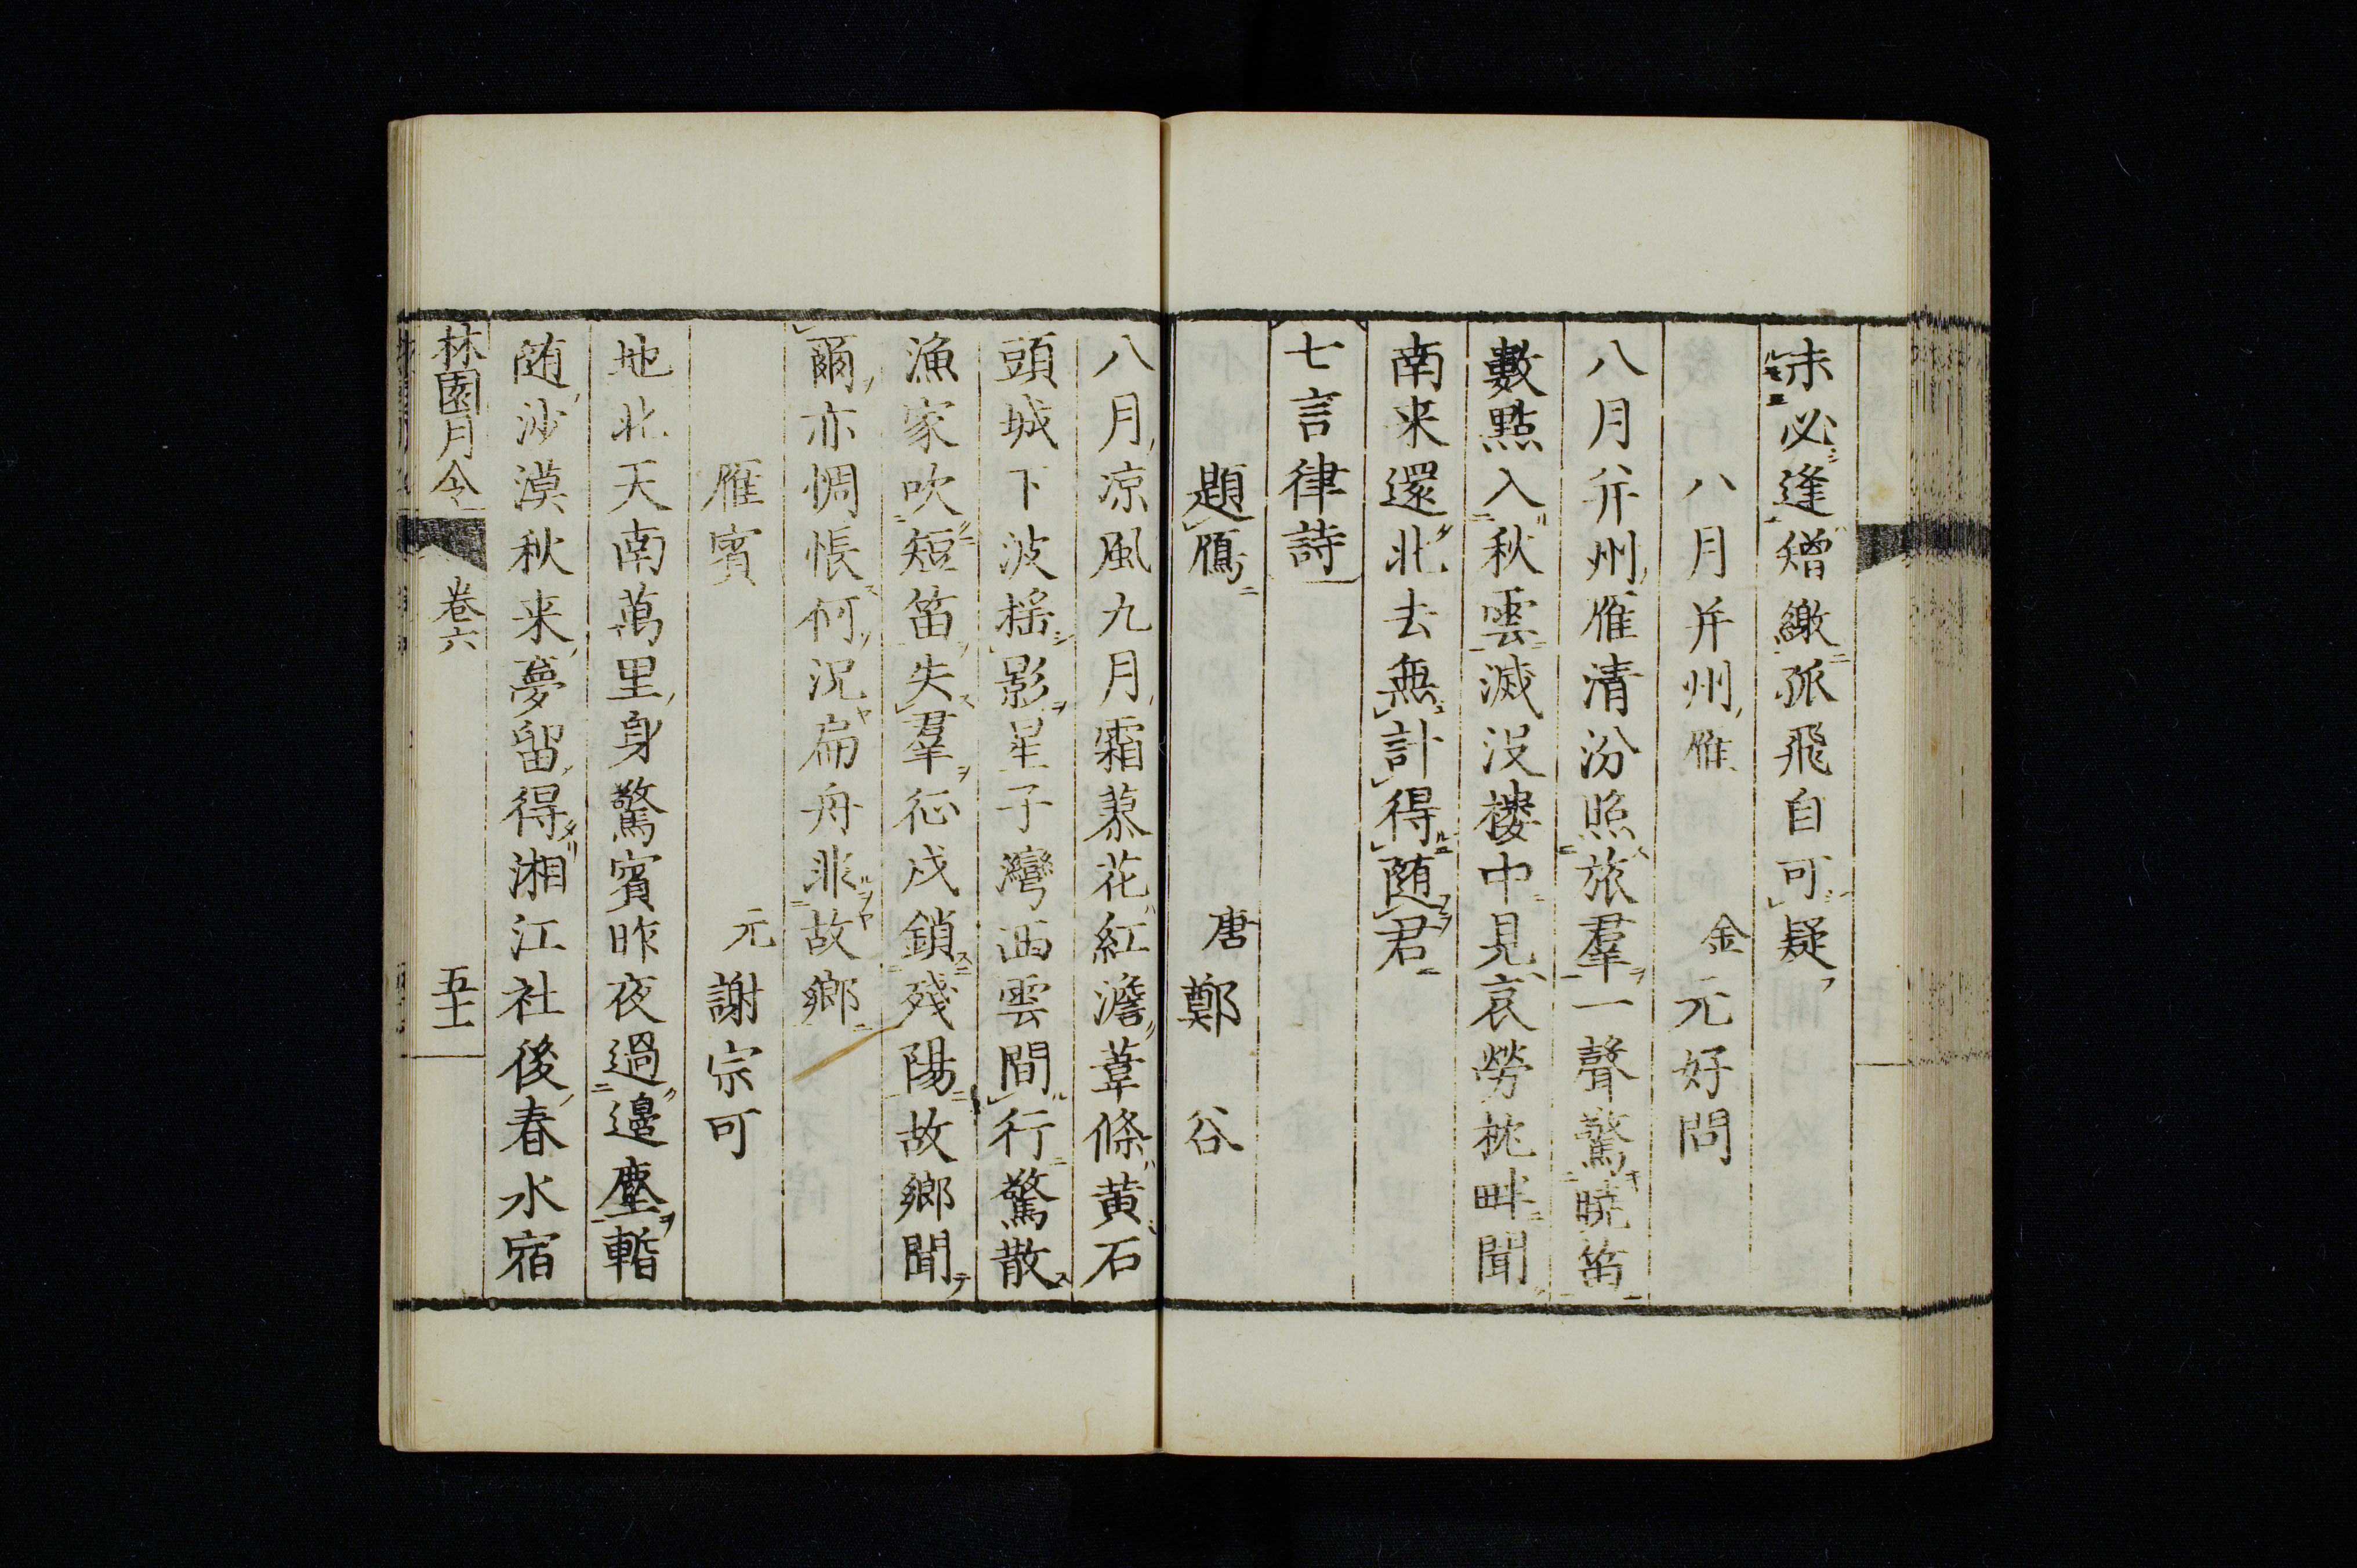 未必逢矰繳孤飛自可疑
八月并州雁 金元好問
八月并州雁清汾照旅羣一聲驚曉笛
數點入秋雲滅没樓中見哀勞枕畔聞
南来還北去無計得随君
七言律詩
題鴈 唐鄭谷
八月凉風九月霜蓼花紅澹葦條黄石
頭城下波揺影星子灣西雲間行驚散
漁家吹短笛失羣征戍鎖殘陽故郷聞
爾亦惆悵何况扁舟非故郷
雁賓 元謝宗可
地北天南萬里身驚賓昨夜過邊塵暫
随沙漠秋来夢留得湘江社後春水宿
林園月令 卷六 五十一